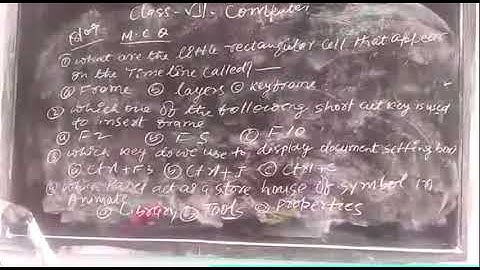 Class - VII - Computer
M.C.Q
① what are the little rectangular cell that appear
on the Timeline called) —
ⓐ Frame ⓑ layers ⓒ keyframe
② which one of the following short cut key is used
to insert frame
ⓐ F2 ⓑ F5 ⓒ F10
③ which key do we use to display document setting box
ⓐ Ctrl+F3 ⓑ Ctrl+J ⓒ Ctrl+
④ which act as a store house of symbol in
ⓐ Library ⓑ Tools ⓒ Properties